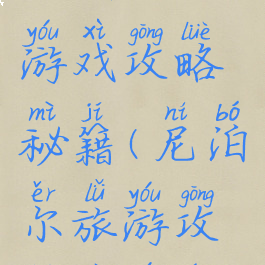 yóu xì gōng lüè
游戏攻略
mì jí ní bó
秘籍(尼泊
ěr lǚ yóu gōng
尔旅游攻